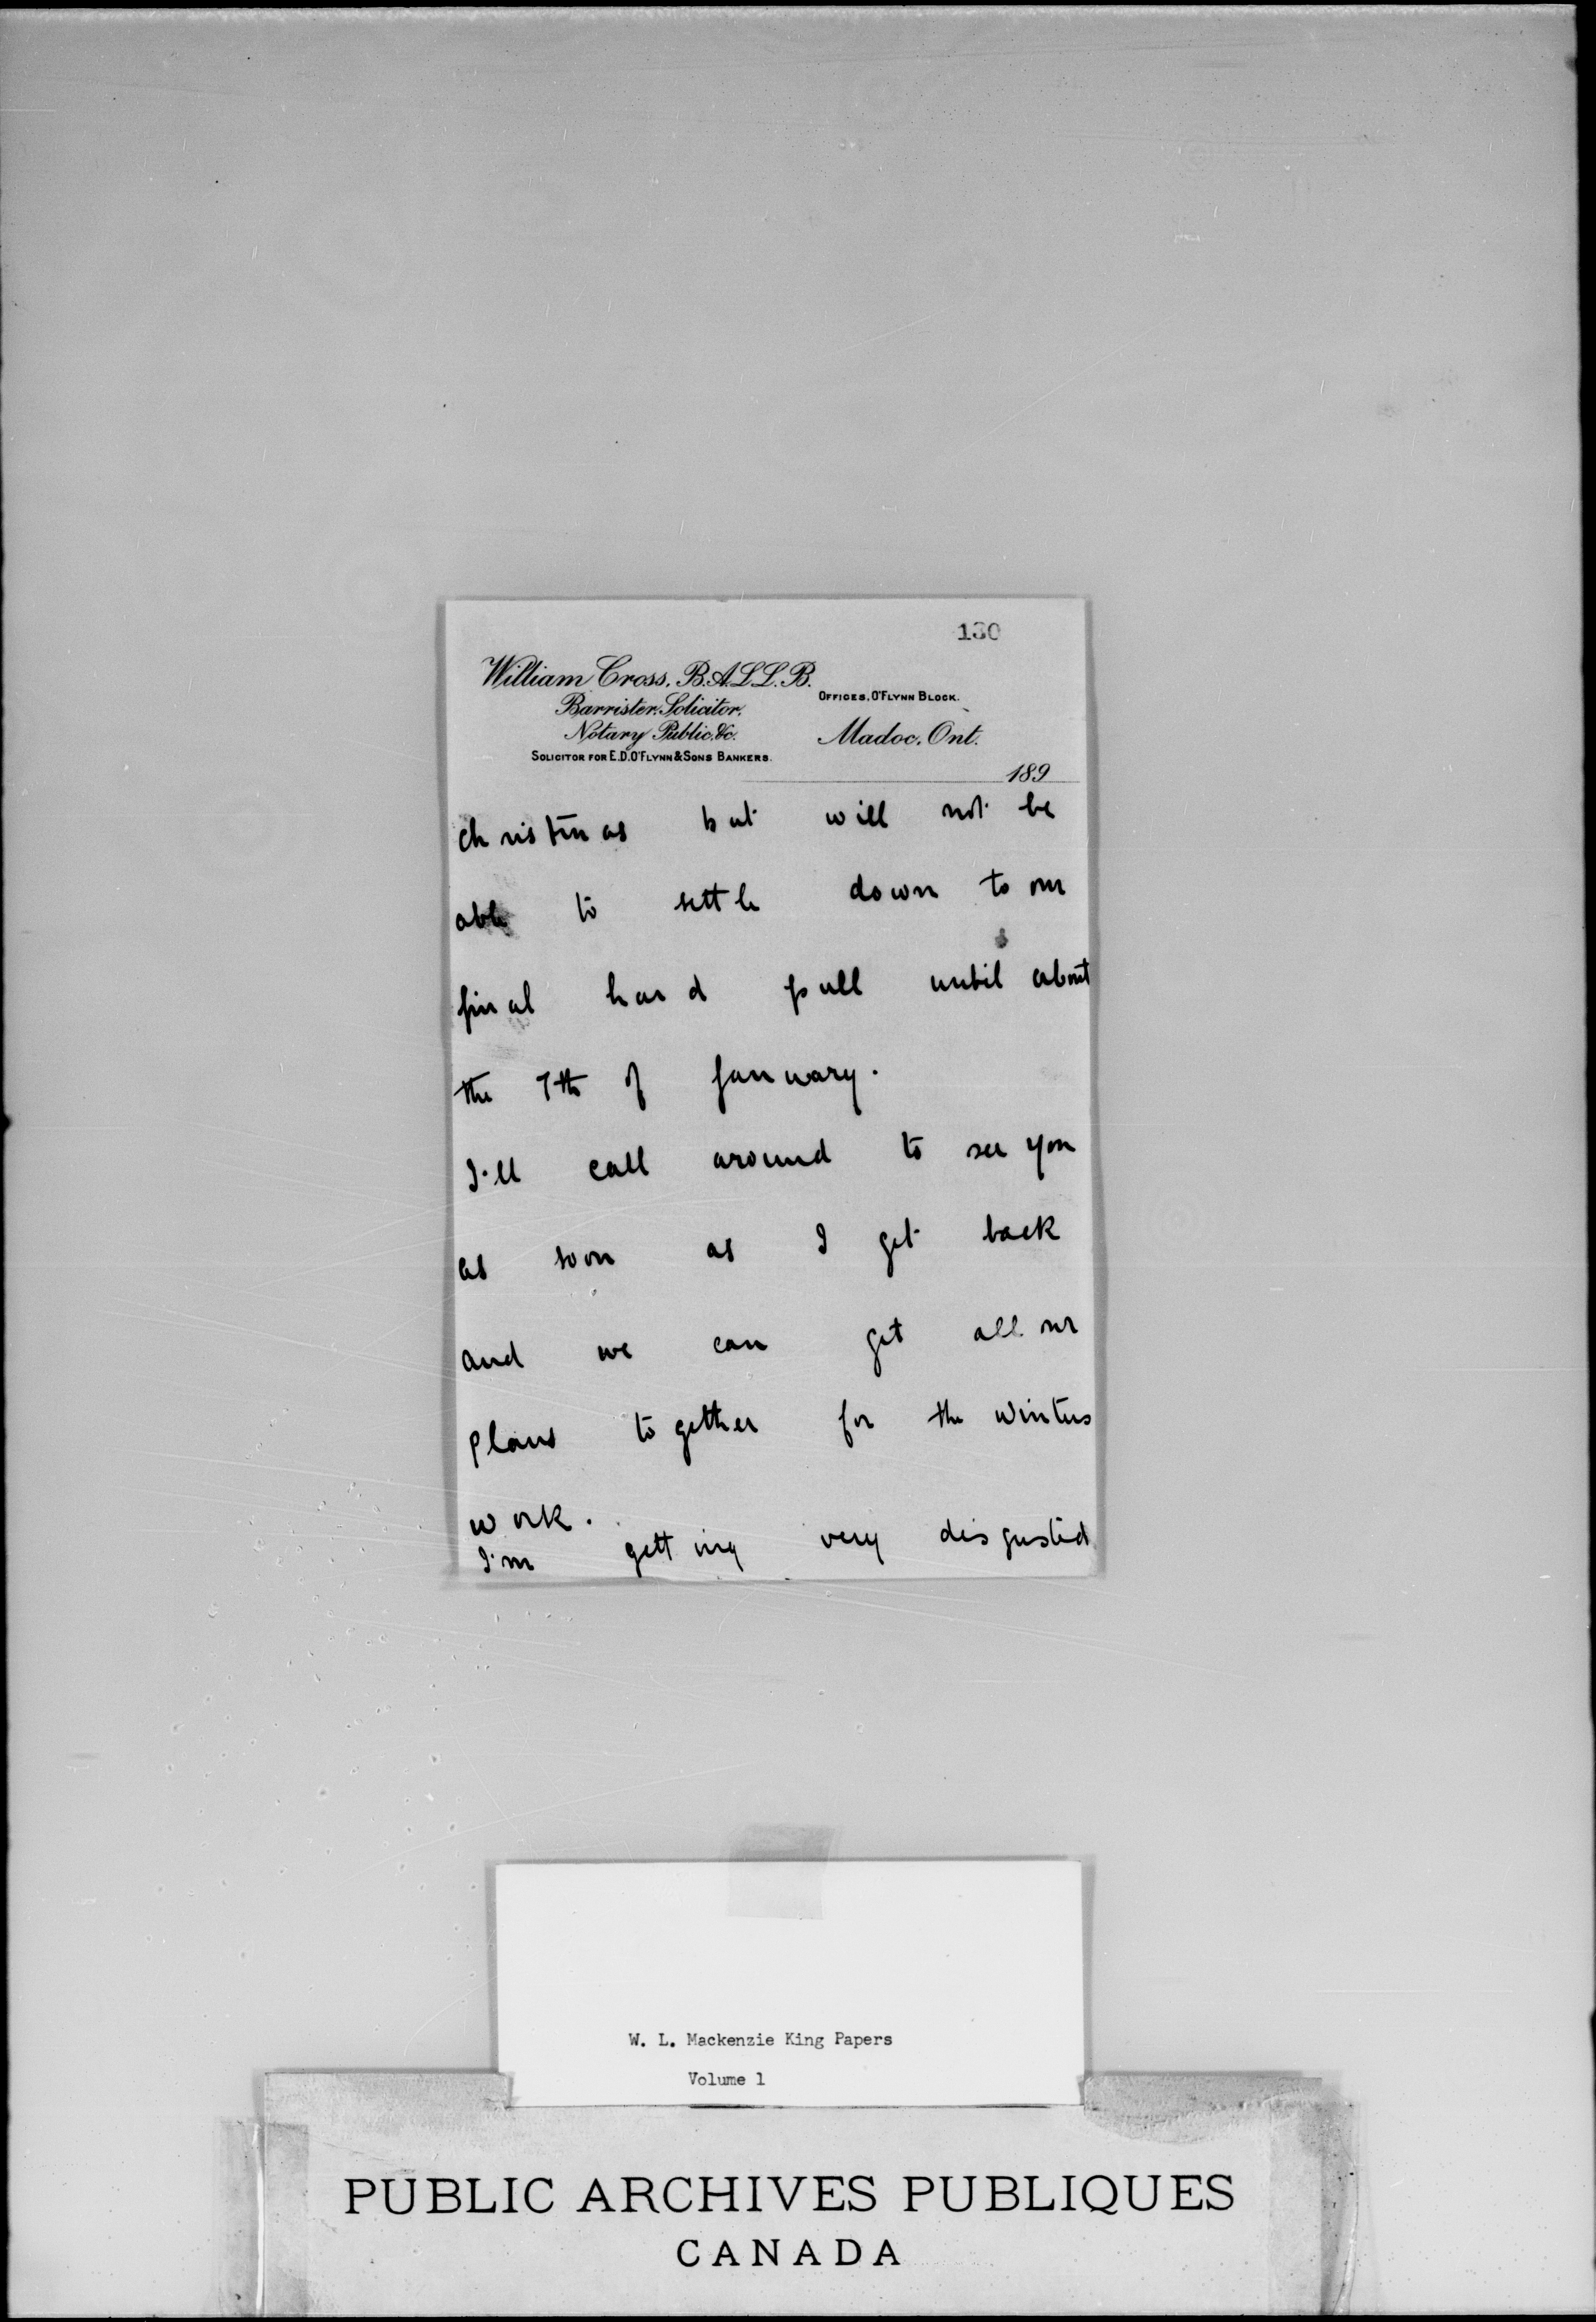 130
William Cross, B.A.L.L.B.
Barrister, Solicitor,
Notary Public, &c.
SOLICITOR FOR E.D. O'FLYNN & SONS BANKERS.
OFFICES, O'FLYNN BLOCK.
Madoc, Ont.
189
christmas but will not be
able to settle down to our
final hard pull until about
the 7th of January.
I'll call around to see you
as soon as I get back
and we can get all our
plans together for the winters
work.
I'm getting very disgusted
W. L. Mackenzie King Papers
Volume 1
PUBLIC ARCHIVES PUBLIQUES
CANADA